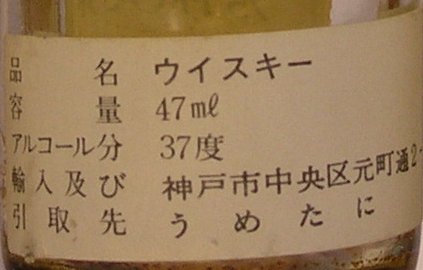 品名 ウイスキー
容量 47ml
アルコール分 37度
輸入及び 神戸市中央区元町通2-
引取先 うめたに